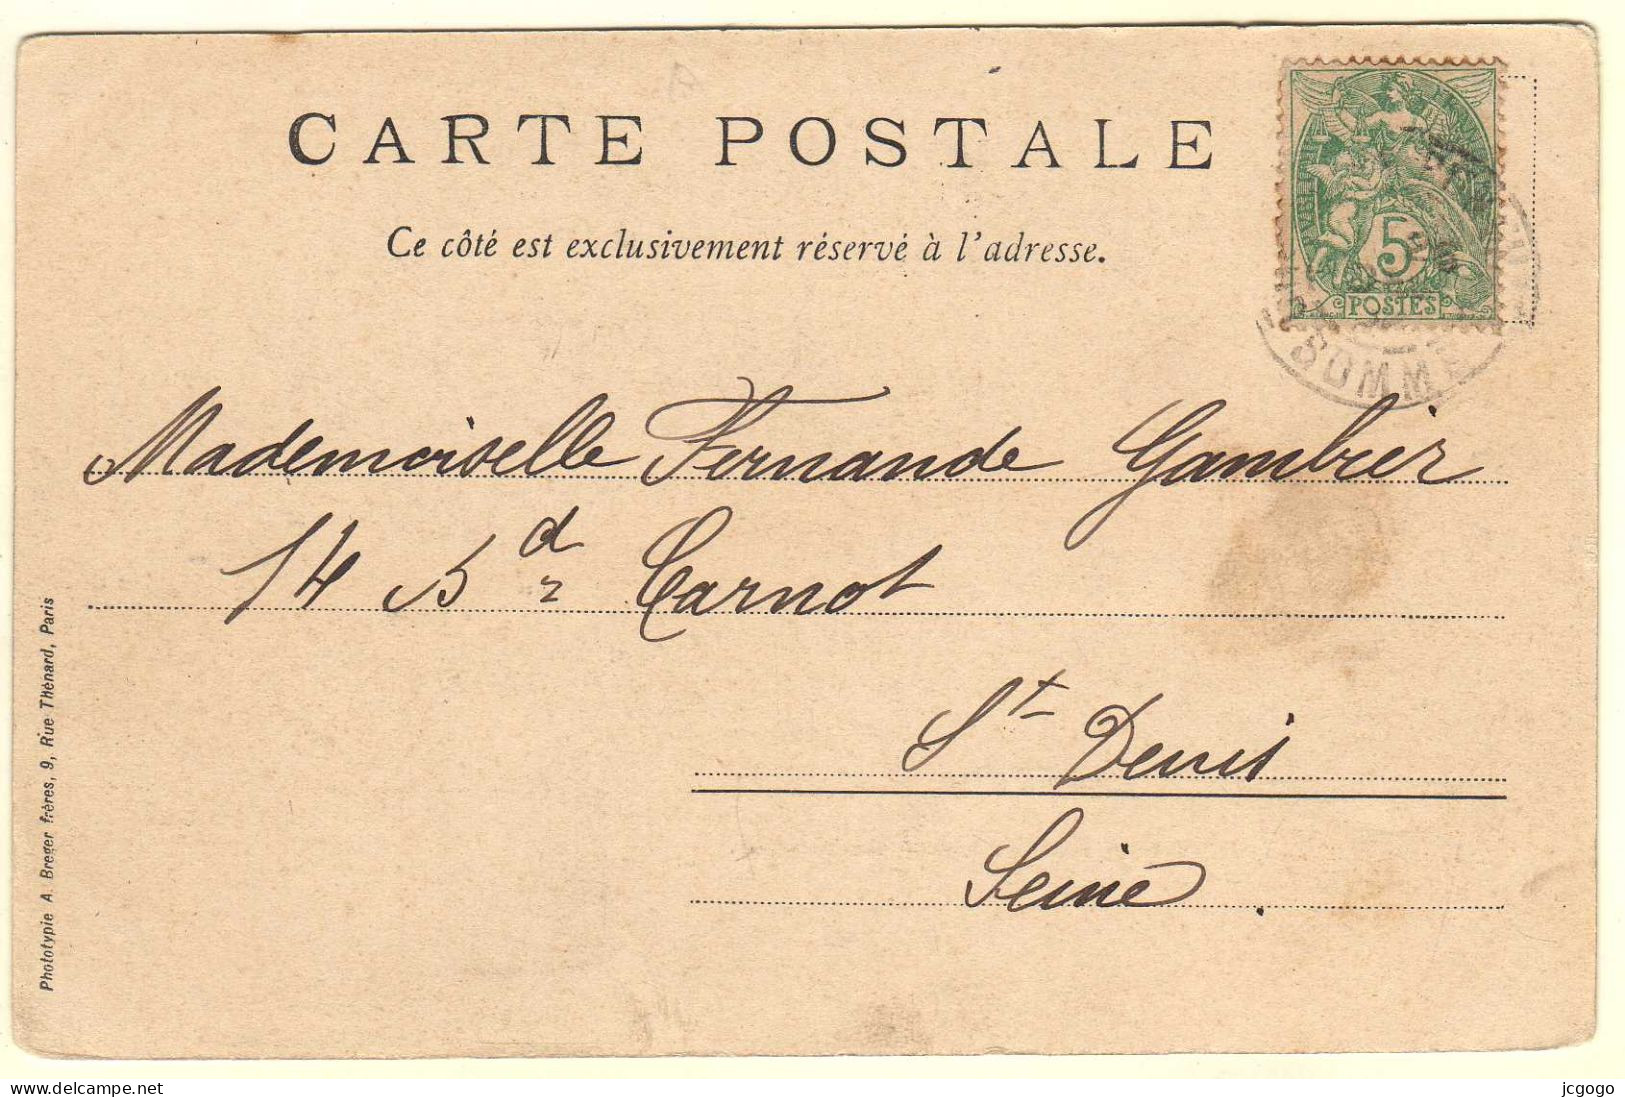 CARTE POSTALE
Ce côté est exclusivement réservé à l'adresse.
5
POSTES
SOMME
Mademoiselle Fernande Gambier
14 Bd Carnot
St Denis
Seine
Phototypie A. Breger frères, 9, Rue Thénard, Paris
www.delcampe.net
jcgogo